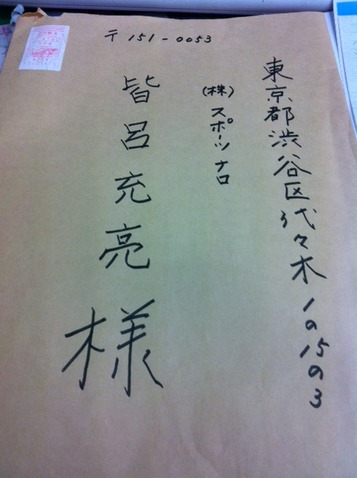 〒151-0053
東京都渋谷区代々木1の15の3
(株)スポーツナロ
皆呂充亮様